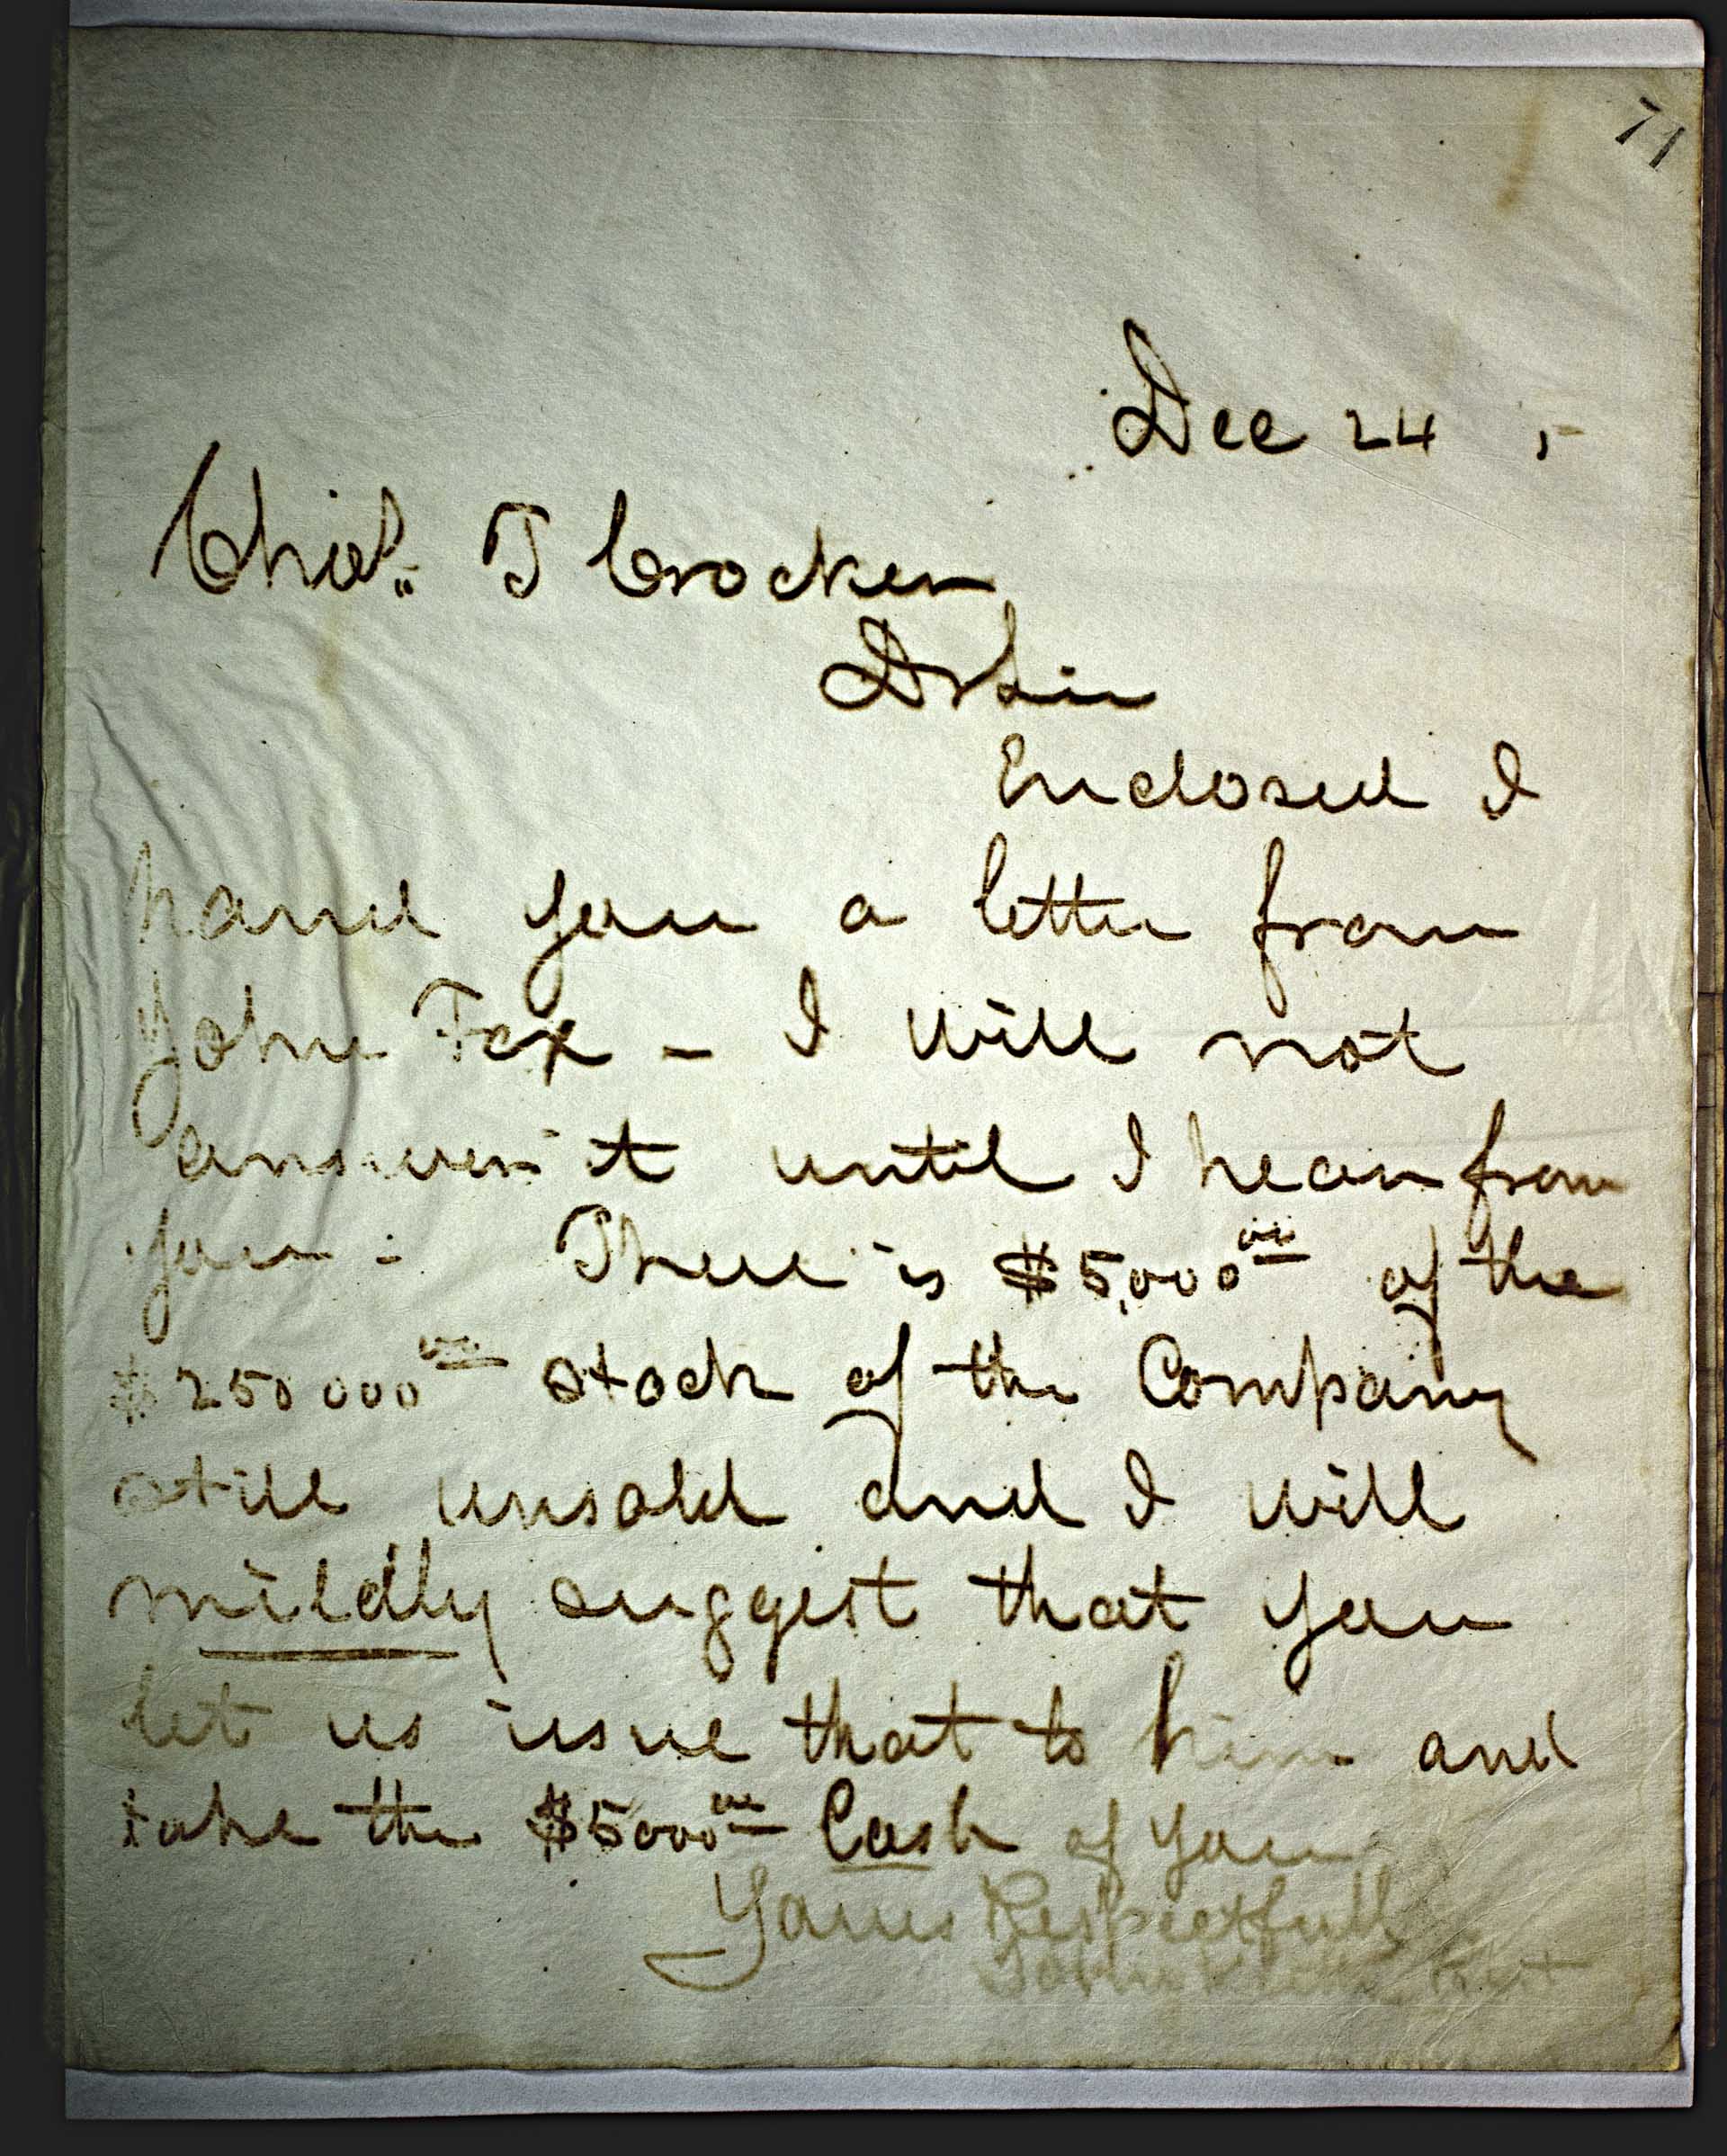 71
Dec 24
Chas. T Crocker
Dr Sir
Enclosed I
hand you a letter from
John Fox - I will not
answer it until I hear from
you - There is $5,000 00 of the
$250000 00 stock of the Company
still unsold and I will
mildly suggest that you
let us issue that to him and
take the $5000 00 Cash of you
Yours Respectfully
John